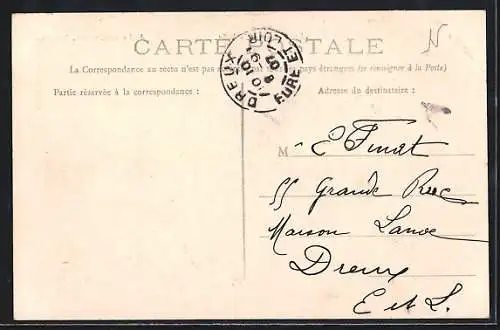 CARTE POSTALE
N
La Correspondance au recto n'est pas pays étrangers (se renseigner à la Poste)
DREUX
EURE ET LOIR
Partie réservée à la correspondance :
Adresse du destinataire :
M
55 Grande Rue
Maison
Dreux
E et L.